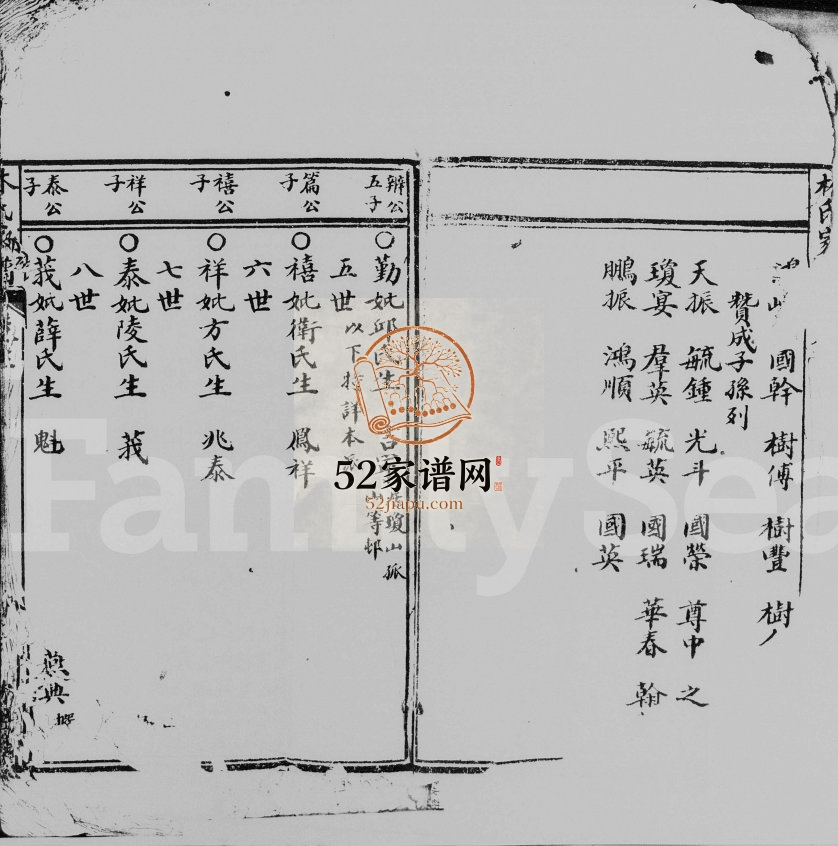 林氏
國幹 樹傅 樹豐 樹
贊成子孫列
天振 毓鍾 光斗 國榮 尊中 之
瓊宴 羣英 毓英 國瑞 華春 翰
鵬振 鴻順 熙平 國英
辨公五子
○勤妣邱氏生
瓊山孤
等邨
五世 以下均詳本
篇公子
○禧妣衛氏生 鳳祥
六世
禧公子
○祥妣方氏生 兆泰
七世
祥公子
○泰妣陵氏生 莪
八世
泰公子
○莪妣薛氏生 魁
燕典
52家谱网
52jiapu.com
FamilySea